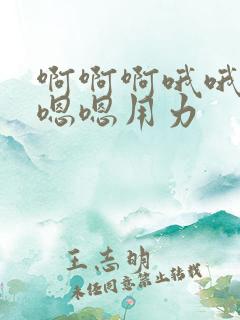 啊啊啊哦哦
嗯嗯用力
王志明
未经同意禁止转载